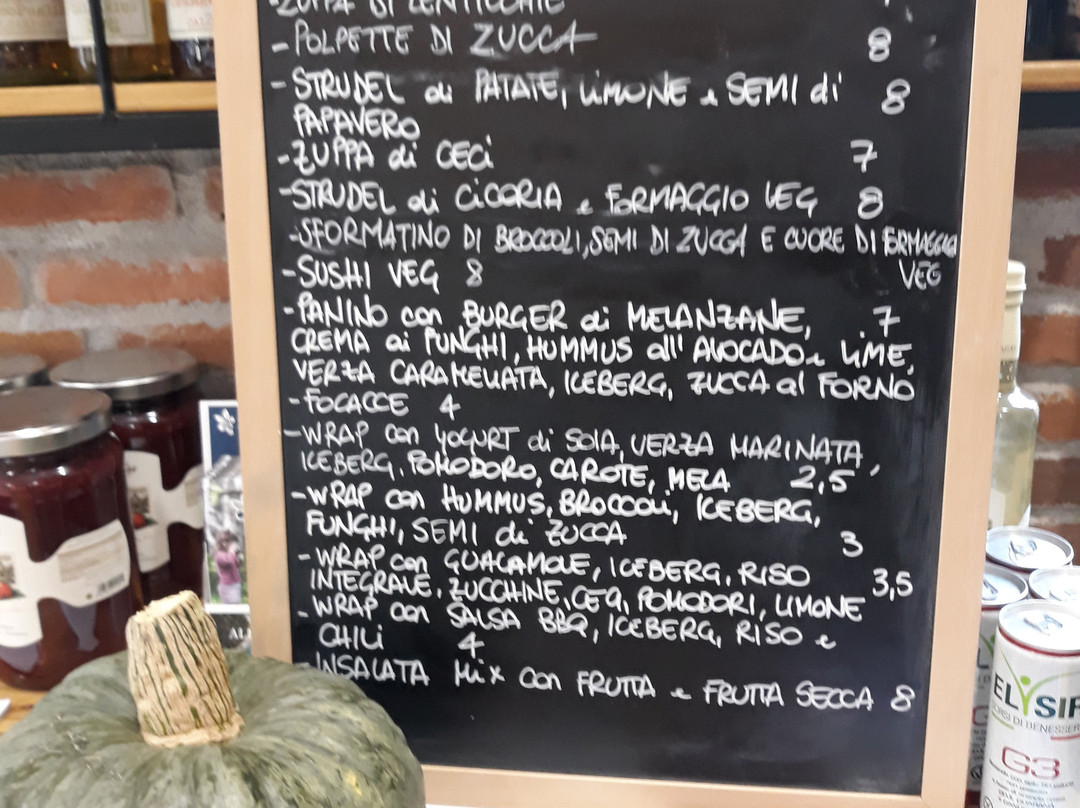 ZUPPA DI LENTICCHIE
- POLPETTE DI ZUCCA 8
- STRUDEL di PATATE, LIMONE e SEMI di 8
PAPAVERO
- ZUPPA di CECI 7
- STRUDEL di CICORIA e FORMAGGIO VEG 8
- SFORMATINO DI BROCCOLI, SEMI DI ZUCCA E CUORE DI FORMAGGIO
VEG
- SUSHI VEG 8
- PANINO con BURGER di MELANZANE, 7
CREMA ai FUNGHI, HUMMUS all' AVOCADO e LIME,
VERZA CARAMELLATA, ICEBERG, ZUCCA al FORNO
- FOCACCE 4
- WRAP con YOGURT di SOIA, VERZA MARINATA,
ICEBERG, POMODORO, CAROTE, MELA 2,5
- WRAP con HUMMUS, BROCCOLI, ICEBERG,
FUNGHI, SEMI di ZUCCA 3
- WRAP con GUACAMOLE, ICEBERG, RISO
INTEGRALE, ZUCCHINE, CECI, POMODORI, LIMONE 3,5
- WRAP con SALSA BBQ, ICEBERG, RISO e
CHILI 4
- INSALATA Mix con FRUTTA e FRUTTA SECCA 8
ELYSIR
DI BENESSERE
G3